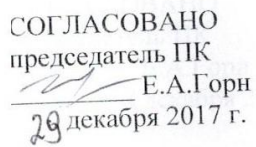 СОГЛАСОВАНО
председатель ПК
Е.А.Горн
29 декабря 2017 г.